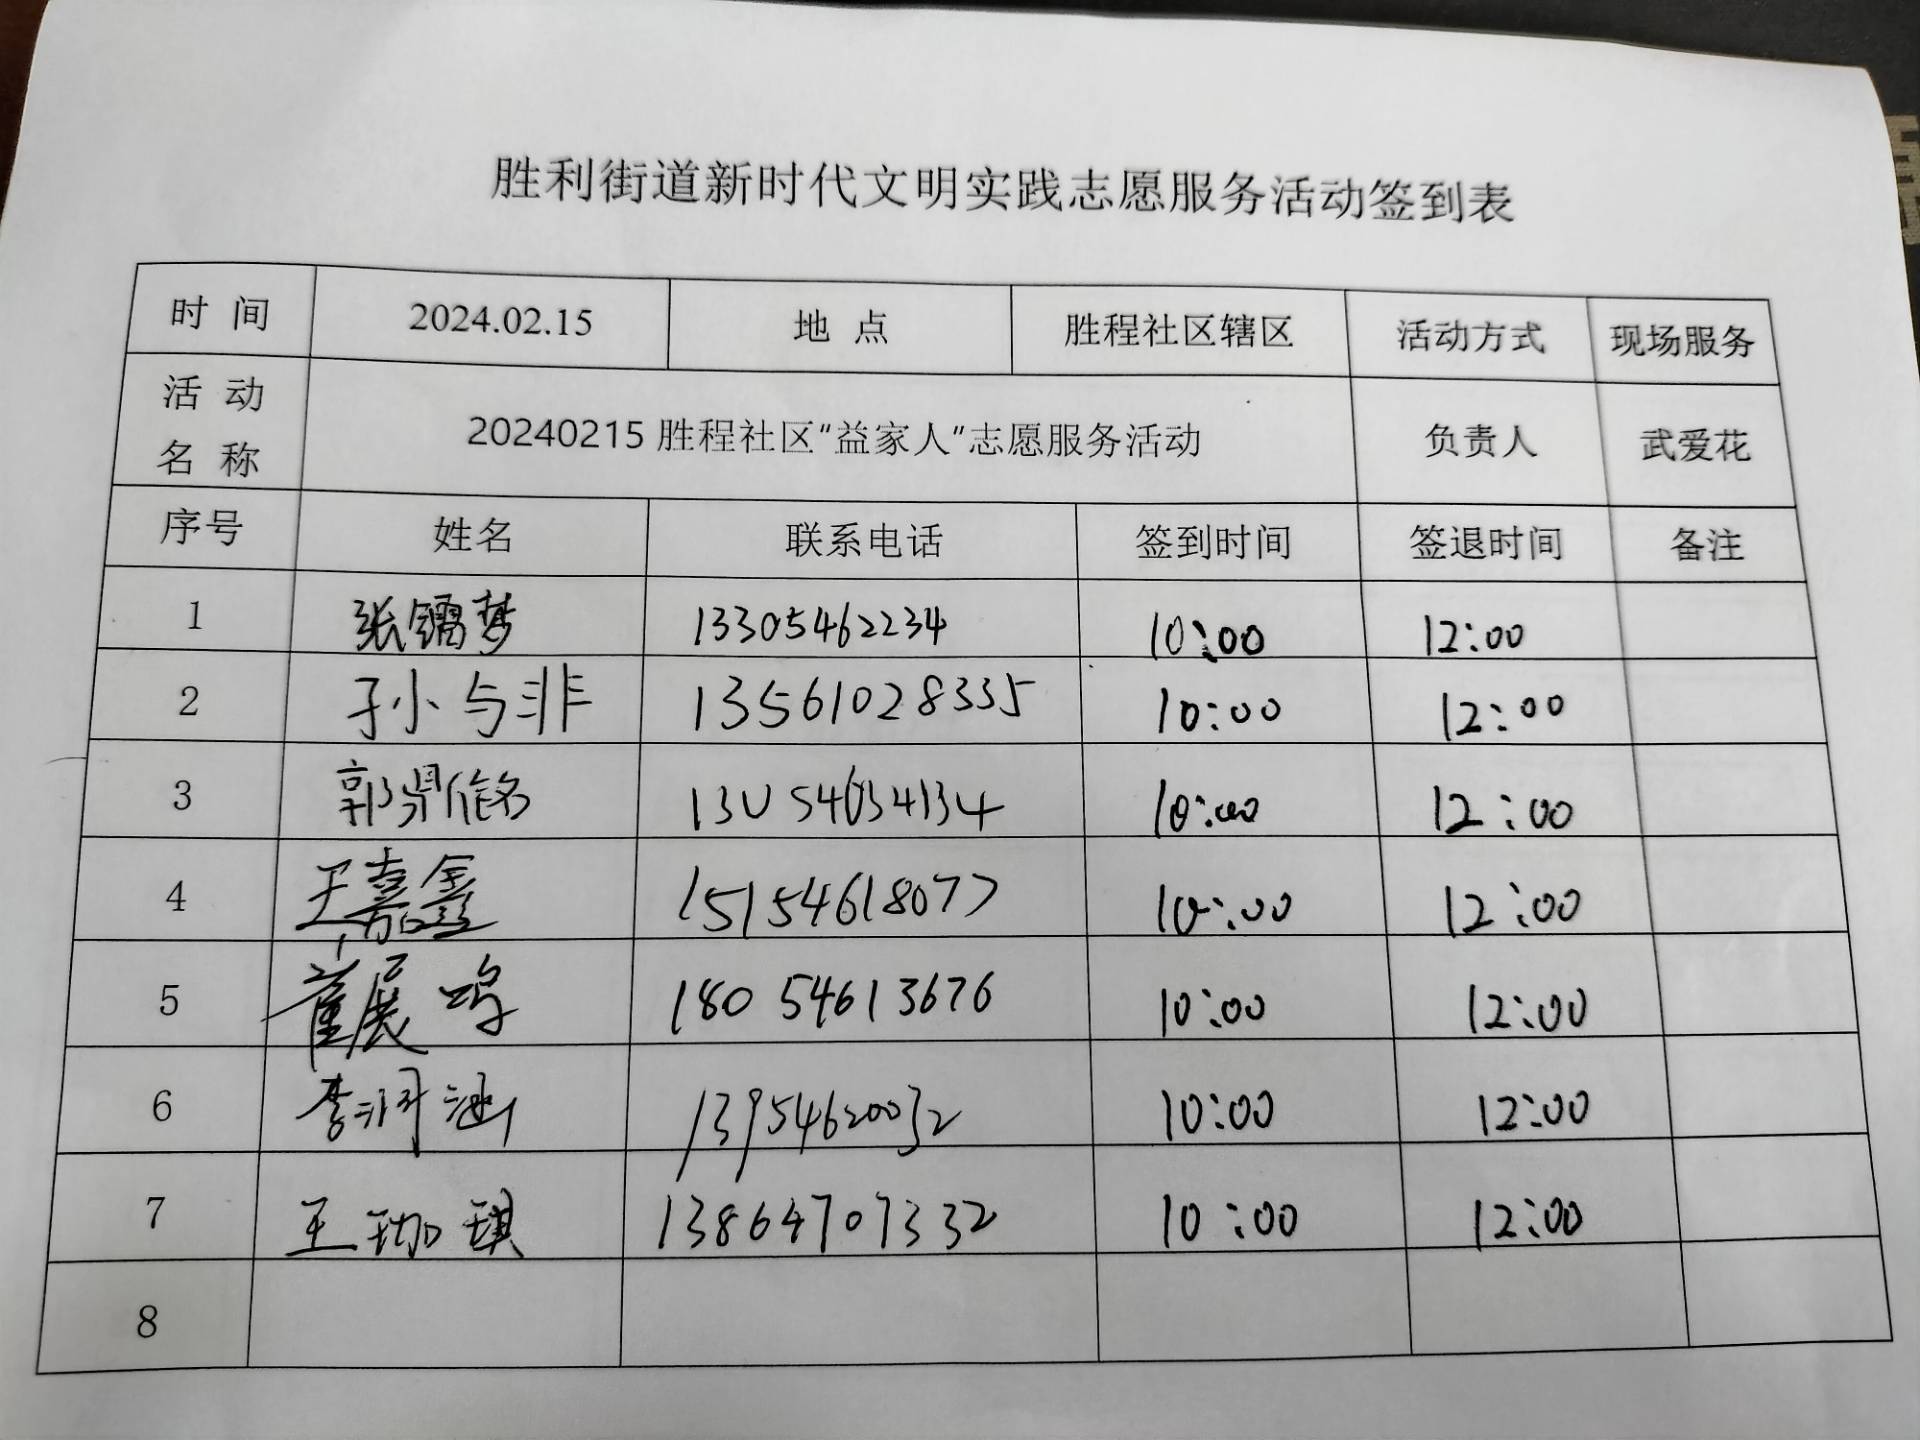 胜利街道新时代文明实践志愿服务活动签到表
时 间 2024.02.15 地 点 胜程社区辖区 活动方式 现场服务
活 动 名 称 20240215 胜程社区“益家人”志愿服务活动 负责人 武爱花
序号 姓名 联系电话 签到时间 签退时间 备注
1 张镭梦 13305462234 10:00 12:00
2 孙与非 13561028335 10:00 12:00
3 郭鼎铭 13054634134 10:00 12:00
4 王嘉鑫 15154618077 10:00 12:00
5 展鸣 18054613676 10:00 12:00
6 李润涵 13954620032 10:00 12:00
7 王珈琪 13864707332 10:00 12:00
8